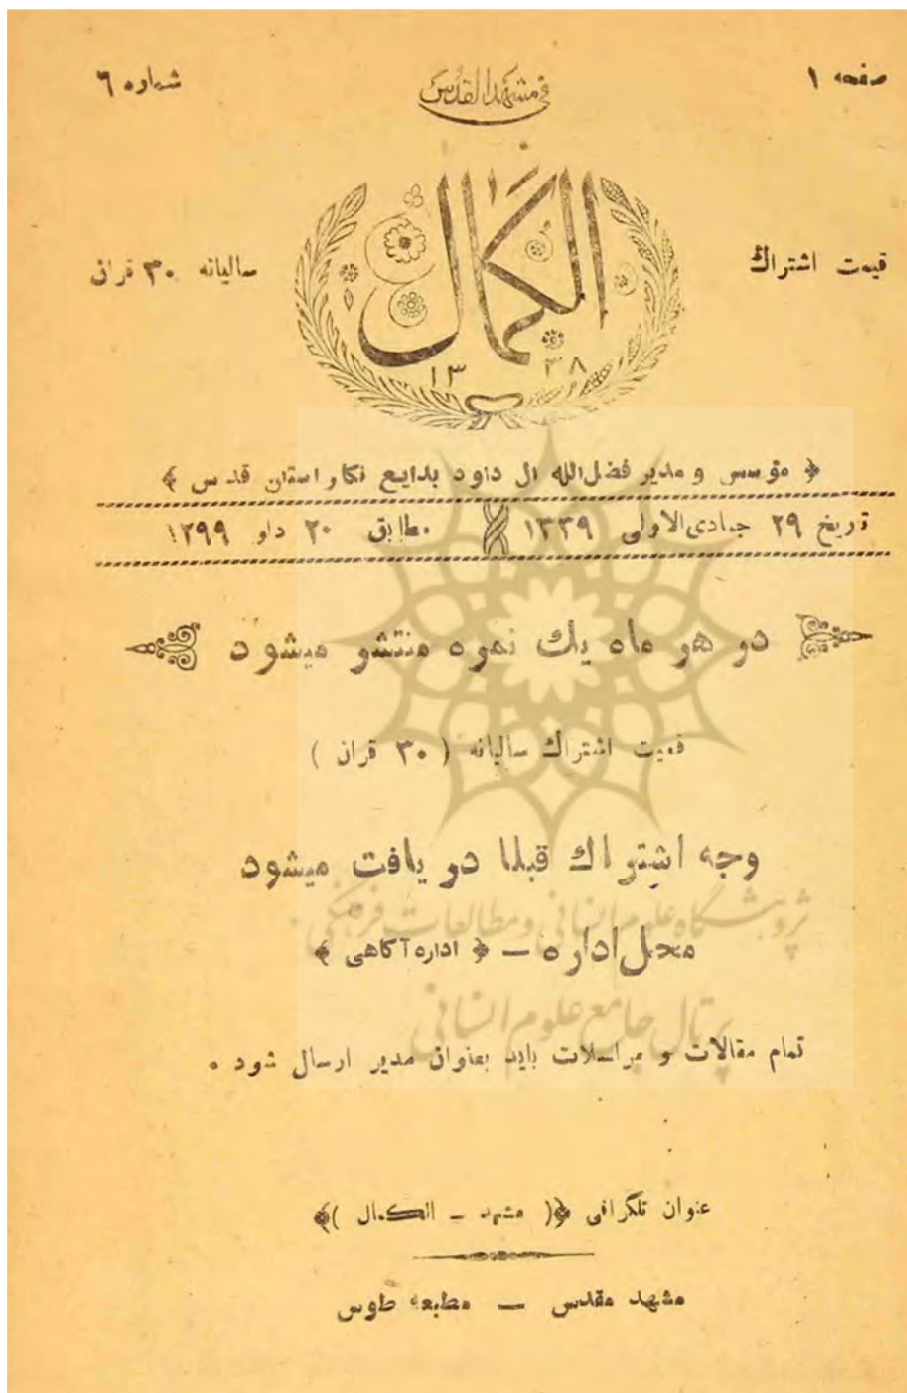 صفحه ۱
فی مشهد المقدس
شماره ۶
قیمت اشتراك
الكمال
سالیانه ۳۰ قران
۱۳۳۸
مؤسس و مدیر فضل‌الله ال داود بدایع نكار استان قدس
تاریخ ۲۹ جمادی‌الاولی ۱۳۳۹
مطابق ۲۰ دلو ۱۲۹۹
در هر ماه یك نمره منتشر میشود
قیمت اشتراك سالیانه ( ۳۰ قران )
وجه اشتراك قبلا دریافت میشود
پژوهشگاه علوم انسانی و مطالعات فرهنگی
محل اداره — اداره آكاهی
پرتال جامع علوم انسانی
تمام مقالات و مراسلات باید بعنوان مدیر ارسال شود .
عنوان تلگرافی ( مشهد - الكمال )
مشهد مقدس — مطبعه طوس